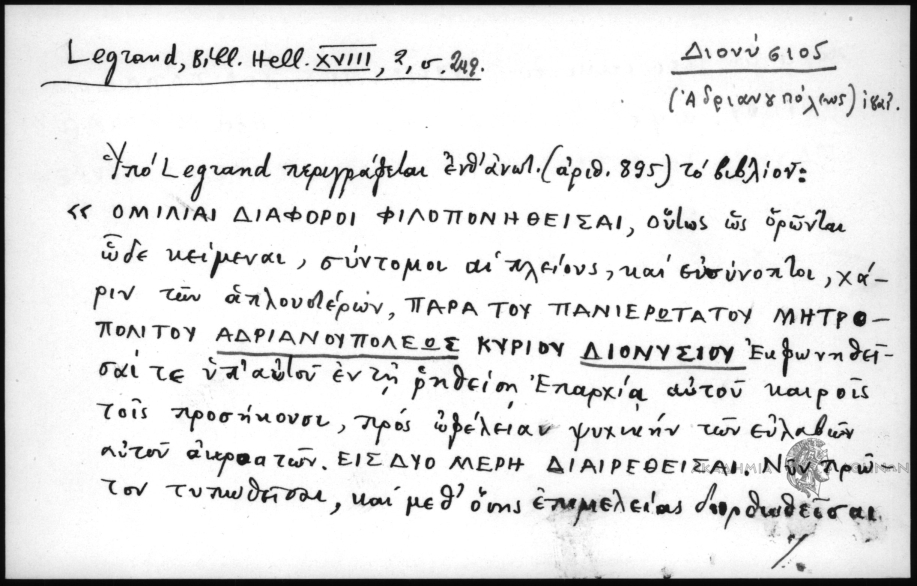 Legrand, Bibl. Hell. XVIII, 2, σ. 249.
Διονύσιος
(Ἀδριανουπόλεως)
Ὑπό Legrand περιγράφεται ἐνθ' ἀνωτ. (ἀριθ. 895) τό βιβλίον:
« ΟΜΙΛΙΑΙ ΔΙΑΦΟΡΟΙ ΦΙΛΟΠΟΝΗΘΕΙΣΑΙ, οὕτως ὡς ὁρῶνται
ὧδε κείμεναι, σύντομοι αἱ πλείους, καί εὐσύνοπτοι, χά-
ριν τῶν ἁπλουστέρων, ΠΑΡΑ ΤΟΥ ΠΑΝΙΕΡΩΤΑΤΟΥ ΜΗΤΡΟ-
ΠΟΛΙΤΟΥ ΑΔΡΙΑΝΟΥΠΟΛΕΩΣ ΚΥΡΙΟΥ ΔΙΟΝΥΣΙΟΥ Ἐκφωνηθεῖ-
σαί τε ὑπ' αὐτοῦ ἐν τῇ ῥηθείσῃ Ἐπαρχίᾳ αὐτοῦ καιροῖς
τοῖς προσήκουσι, πρός ὠφέλειαν ψυχικήν τῶν εὐλαβῶν
αὐτοῦ ἀκροατῶν. ΕΙΣ ΔΥΟ ΜΕΡΗ ΔΙΑΙΡΕΘΕΙΣΑΙ. Νῦν πρῶ
τον τυπωθεῖσαι, καί μεθ' ὅσης ἐπιμελείας διορθωθεῖσαι.